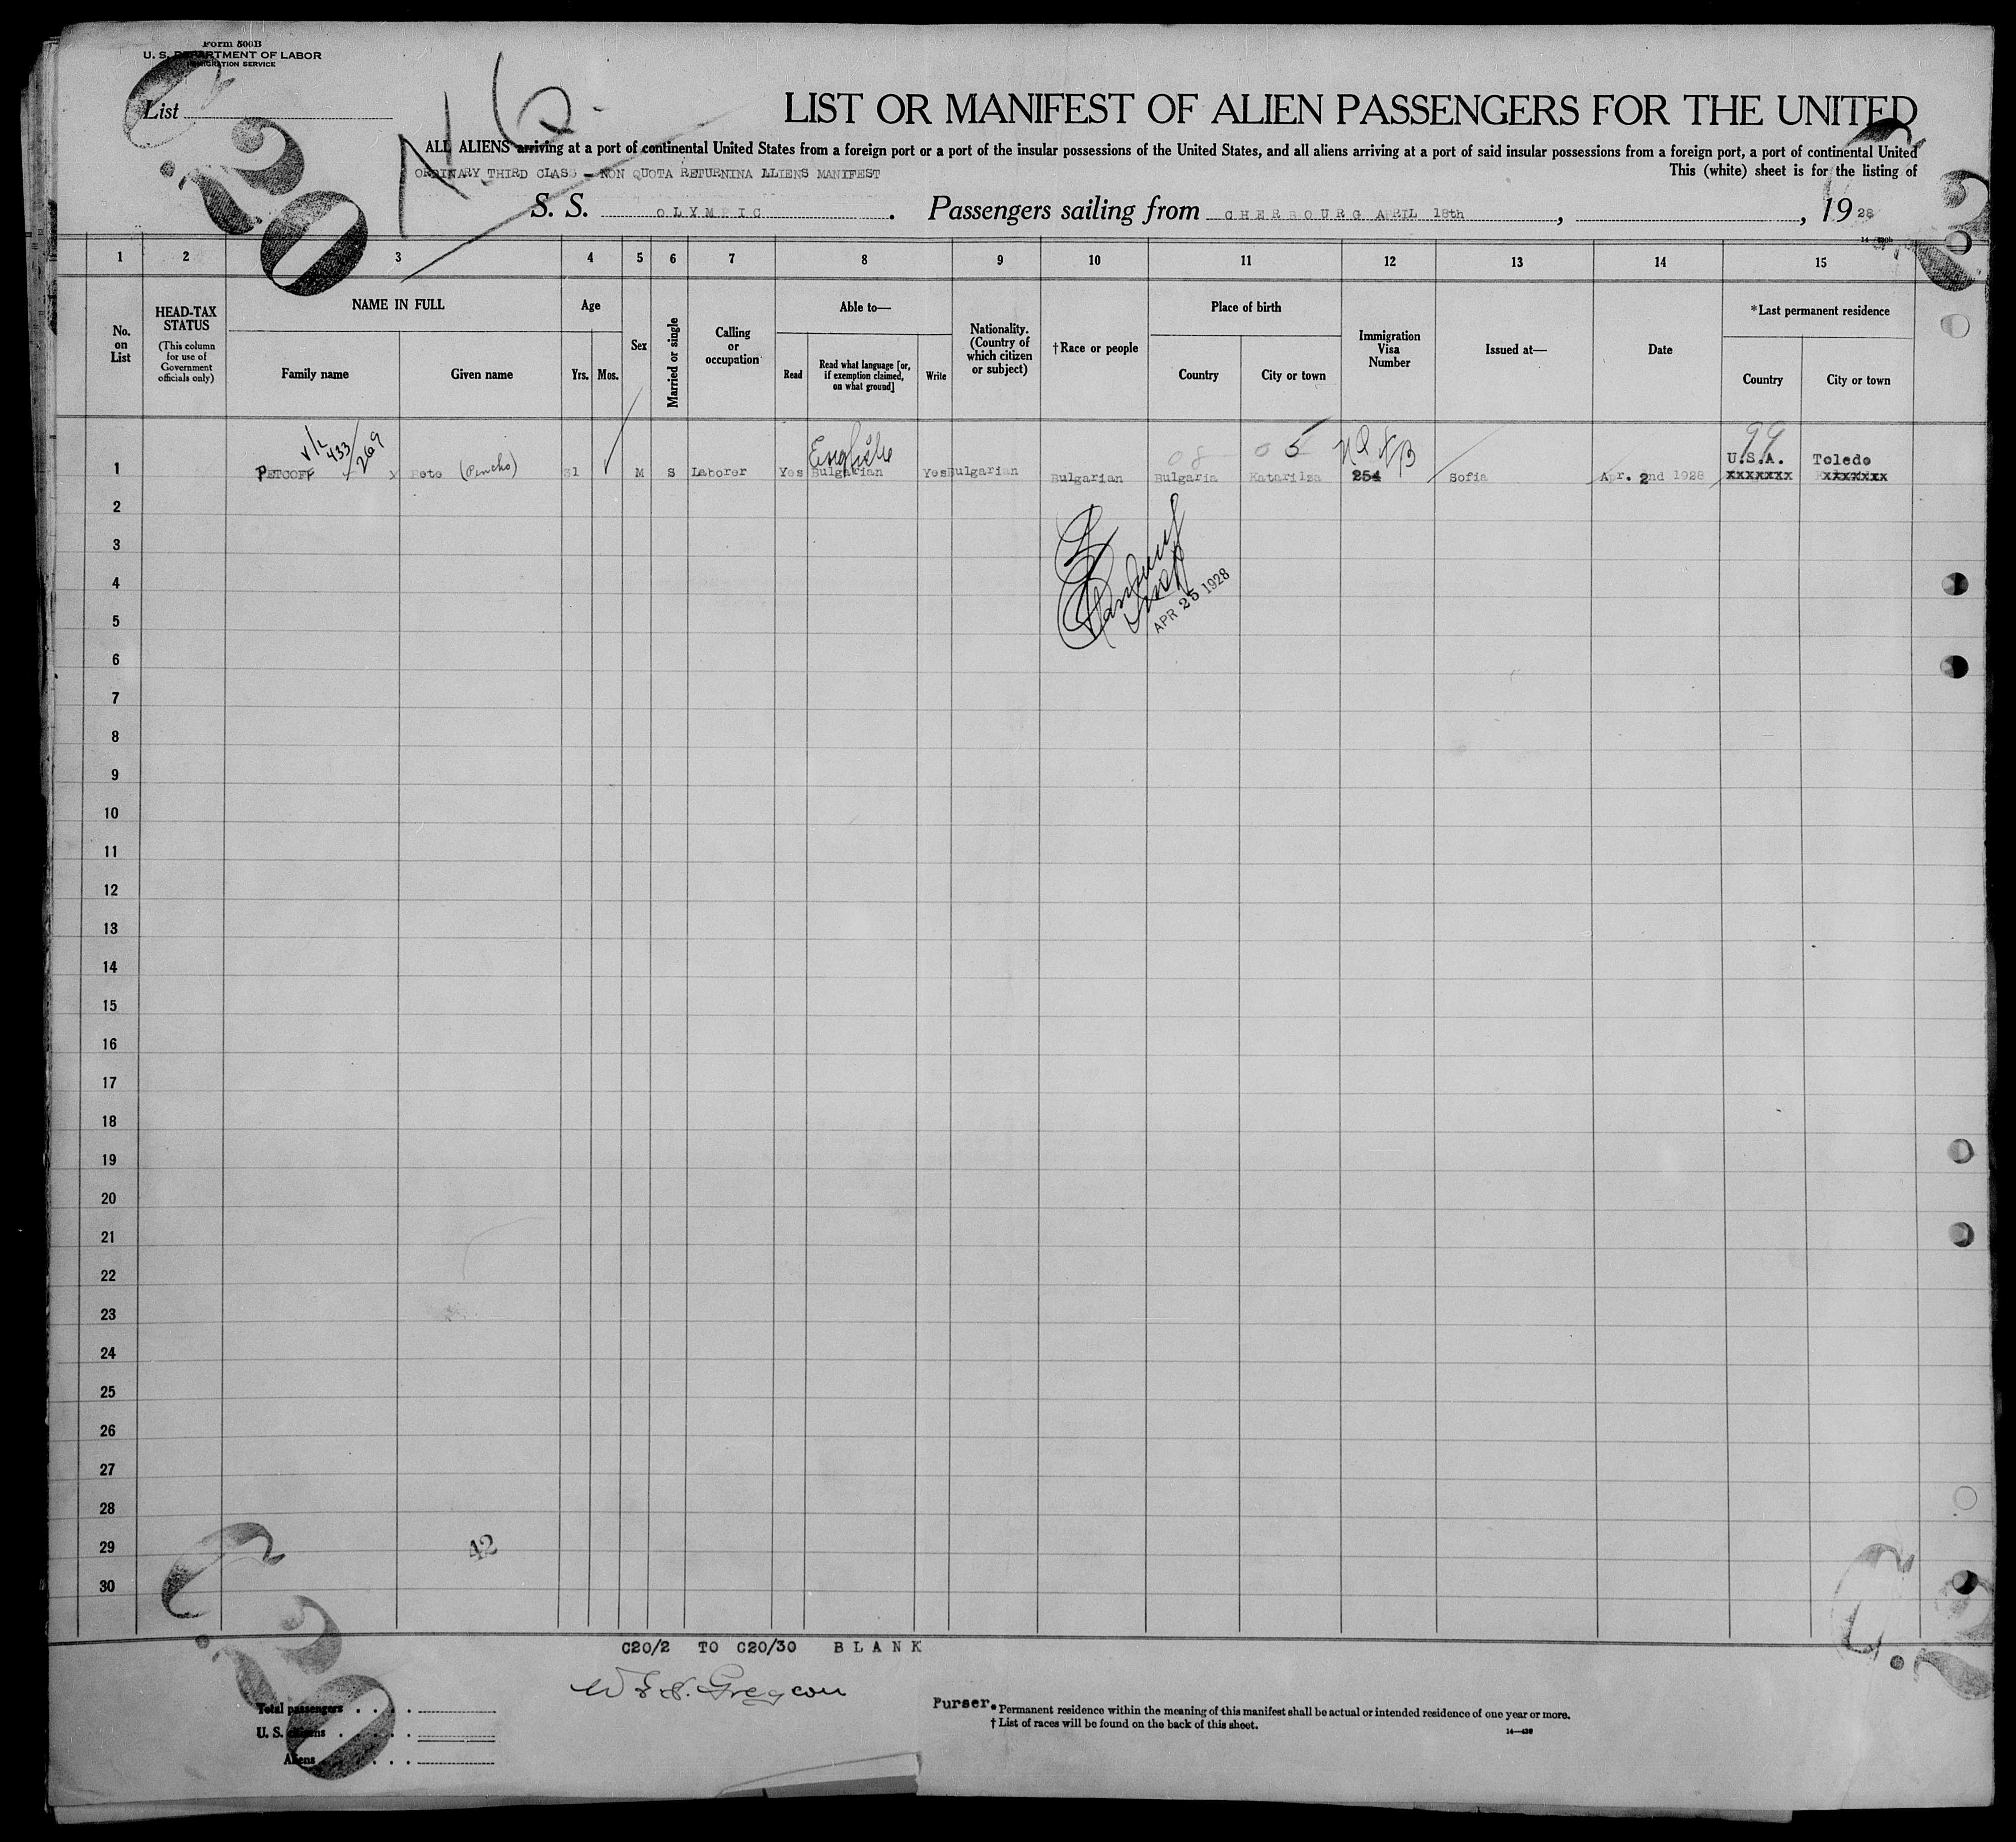 Form 500B
U. S. DEPARTMENT OF LABOR
IMMIGRATION SERVICE
List
C.20
N.Q.
LIST OR MANIFEST OF ALIEN PASSENGERS FOR THE UNITED
ALL ALIENS arriving at a port of continental United States from a foreign port or a port of the insular possessions of the United States, and all aliens arriving at a port of said insular possessions from a foreign port, a port of continental United
ORDINARY THIRD CLASS - NON QUOTA RETURNINA LLIENS MANIFEST
This (white) sheet is for the listing of
S. S. OLYMPIC. Passengers sailing from CHERBOURG APRIL 18th, , 1928
1 2 3 4 5 6 7 8 9 10 11 12 13 14 15
No. on List
HEAD-TAX STATUS
(This column for use of Government officials only)
NAME IN FULL
Family name Given name
Age
Yrs. Mos.
Sex
Married or single
Calling or occupation
Able to—
Read
Read what language [or, if exemption claimed, on what ground]
Write
Nationality. (Country of which citizen or subject)
†Race or people
Place of birth
Country City or town
Immigration Visa Number
Issued at—
Date
*Last permanent residence
Country City or town
433/269
English
08 05 99
U.S.A. Toledo
1 PETCOFF x Pete (Pencho) 31 M S Laborer Yes Bulgarian Yes Bulgarian Bulgarian Bulgaria Katarilza 254 Sofia Apr. 2nd 1928 xxxxxxx xxxxxxx
2
3
4
APR 25 1928
5
6
7
8
9
10
11
12
13
14
15
16
17
18
19
20
21
22
23
24
25
26
27
28
29
42
30
C.20
C20/2 TO C20/30 BLANK
Purser.
Total passengers
U. S. citizens
Aliens
* Permanent residence within the meaning of this manifest shall be actual or intended residence of one year or more.
† List of races will be found on the back of this sheet.